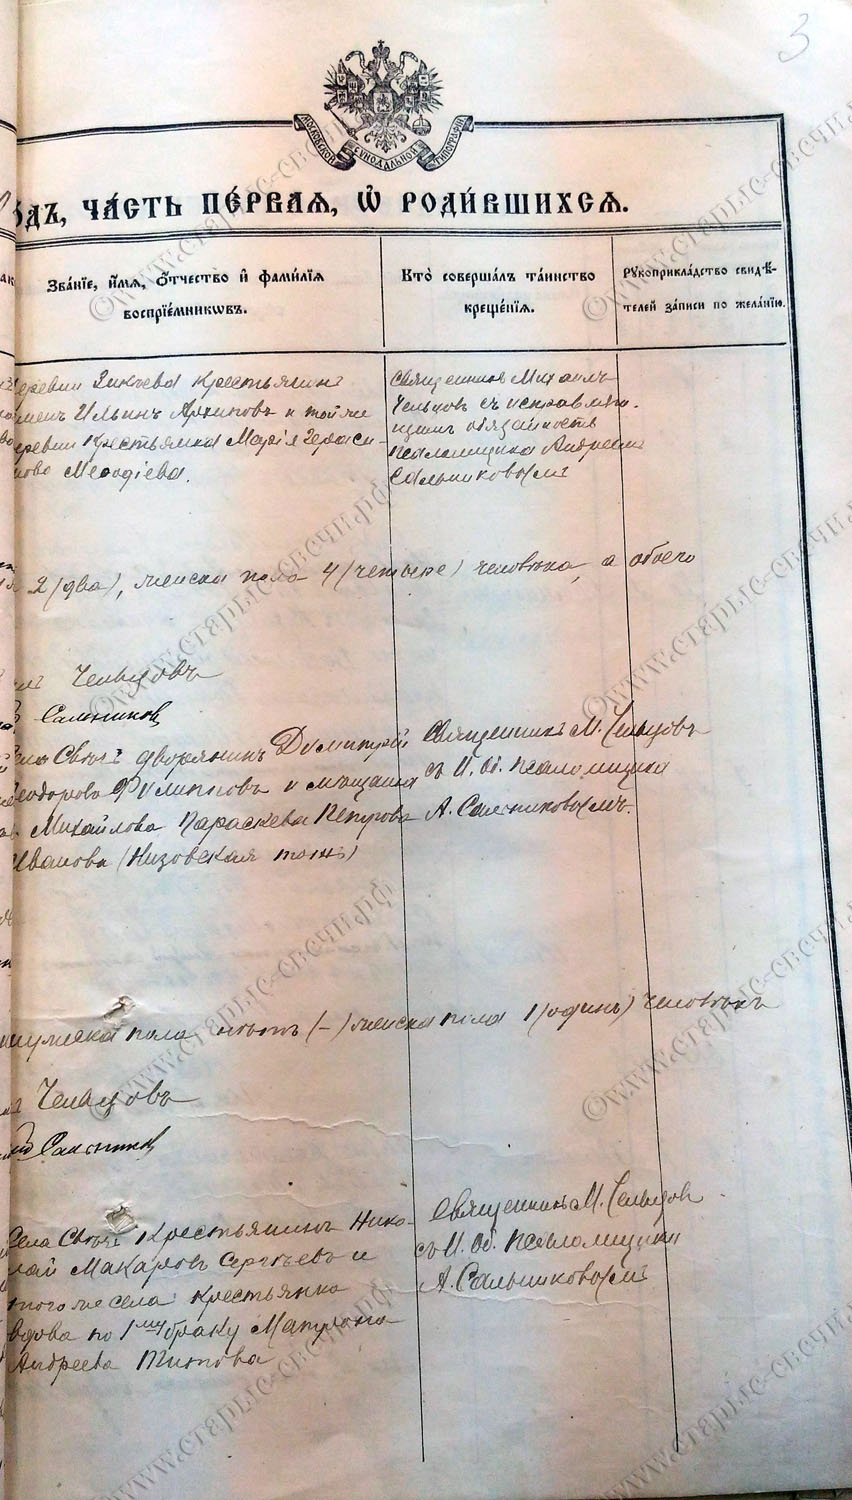 3
МОСКОВСКОЙ СѴНОДАЛЬНОЙ ТИПОГРАФІИ
ОДЪ, ЧА́СТЬ ПЕ́РВАЯ, Ѡ҆ РОДИ́ВШИХСЯ.
ЗВА́НІЕ, И҆́МЯ, Ѻ҆́ТЧЕСТВО И҆ ФАМИ́ЛІЯ
ВОСПРІЕ́МНИКѠВЪ.
КТО̀ СОВЕРША́ЛЪ ТА́ИНСТВО
КРЕЩЕ́НІЯ.
РꙊКОПРИКЛА́ДСТВО СВИДѢ́-
ТЕЛЕЙ ЗА́ПИСИ ПО ЖЕЛА́НІЮ.
еревни Зикѣева крестьянинъ
Ильинъ Архиповъ и той же
еревни крестьянка Марія Гераси-
мова Меѳодіева.
Священникъ Михаилъ
Чельцовъ съ исправляю-
щимъ обязаность
псаломщика Андреемъ
Сальниковымъ
2 (два), женска пола 4 (четыре) человѣка, а обоего
Чельцовъ
Сальников
ела дворянинъ Димитрій
еодоровъ Филипповъ и мѣщанка
Михайлова Параскева Петрова
Иванова (Низовская тожъ)
Священникъ М. Чельцовъ
съ И. об. псаломщика
А. Сальниковымъ.
мужска пола нѣтъ (-) женска пола 1 (одинъ) человѣкъ
Чельцовъ
Сальников
Села крестьянинъ Нико-
лай Макаровъ Сергѣевъ и
того же села крестьянка
вдова по 1му браку Матрона
Андреева Титова
Священникъ М. Чельцов
съ И. об. псаломщика
А. Сальниковымъ
©www.старые-свечи.рф